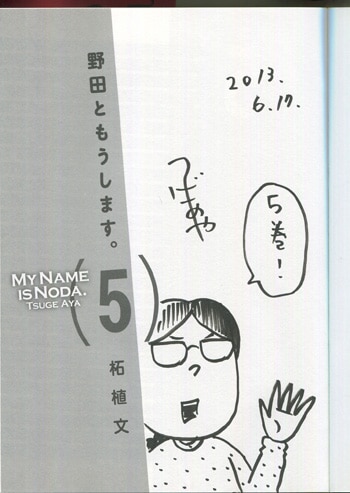 野田ともうします。
MY NAME
IS NODA.
TSUGE AYA
(5)
柘植文
2013.
6.17.
つげあや
5巻!